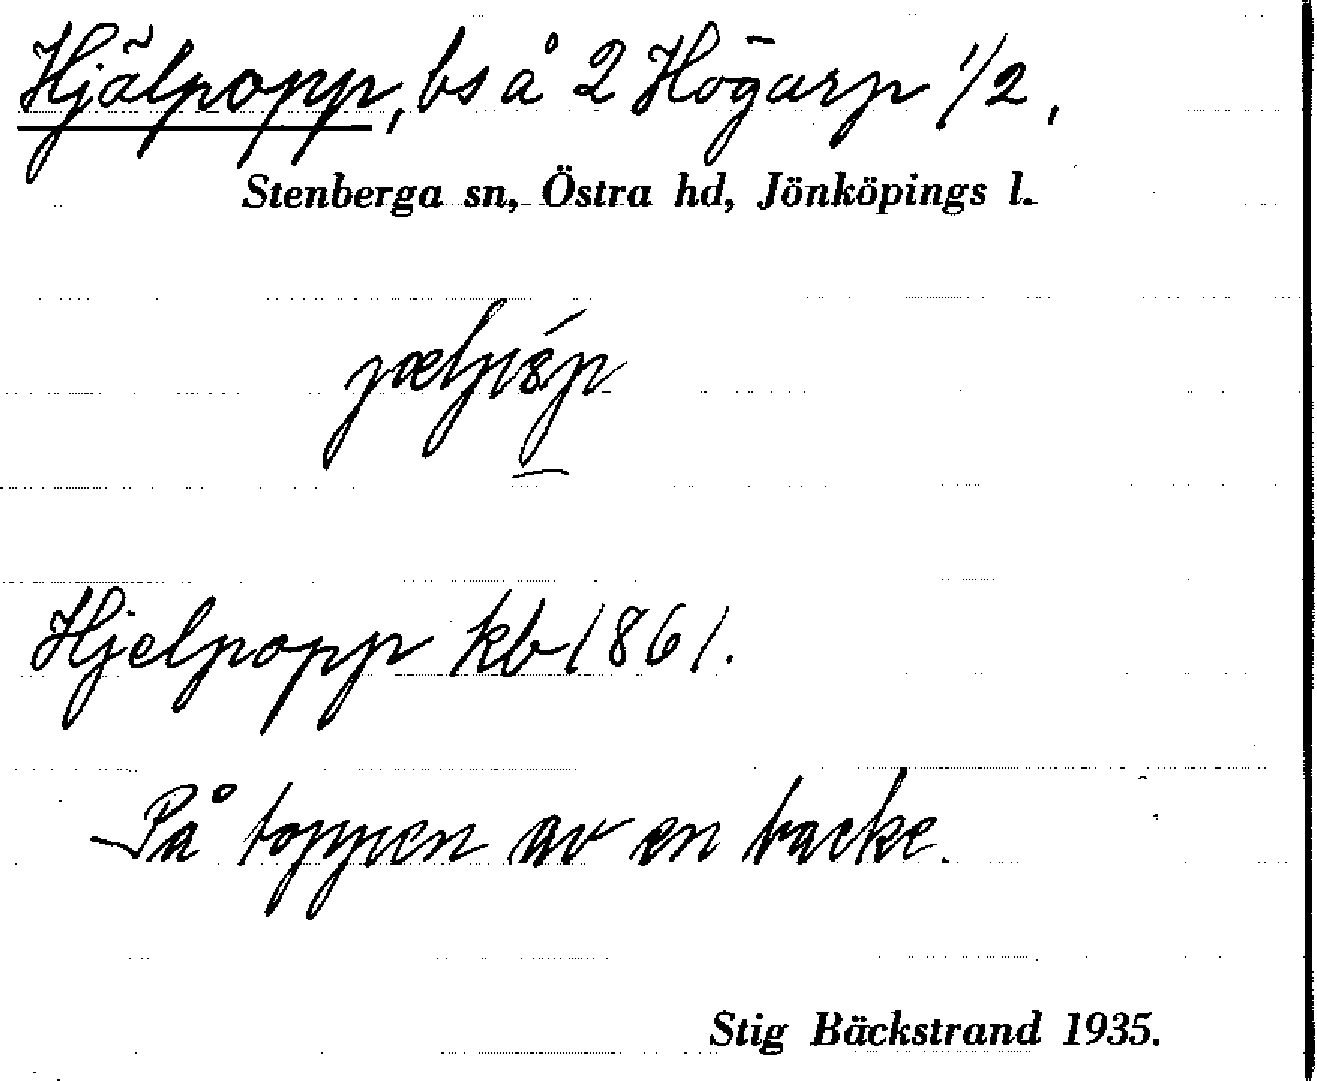 Hjälpopp, bs å 2 Högarp 1/2,
Stenberga sn, Östra hd, Jönköpings l.
Hjelpopp kb 1861.
På toppen av en backe.
Stig Bäckstrand 1935.